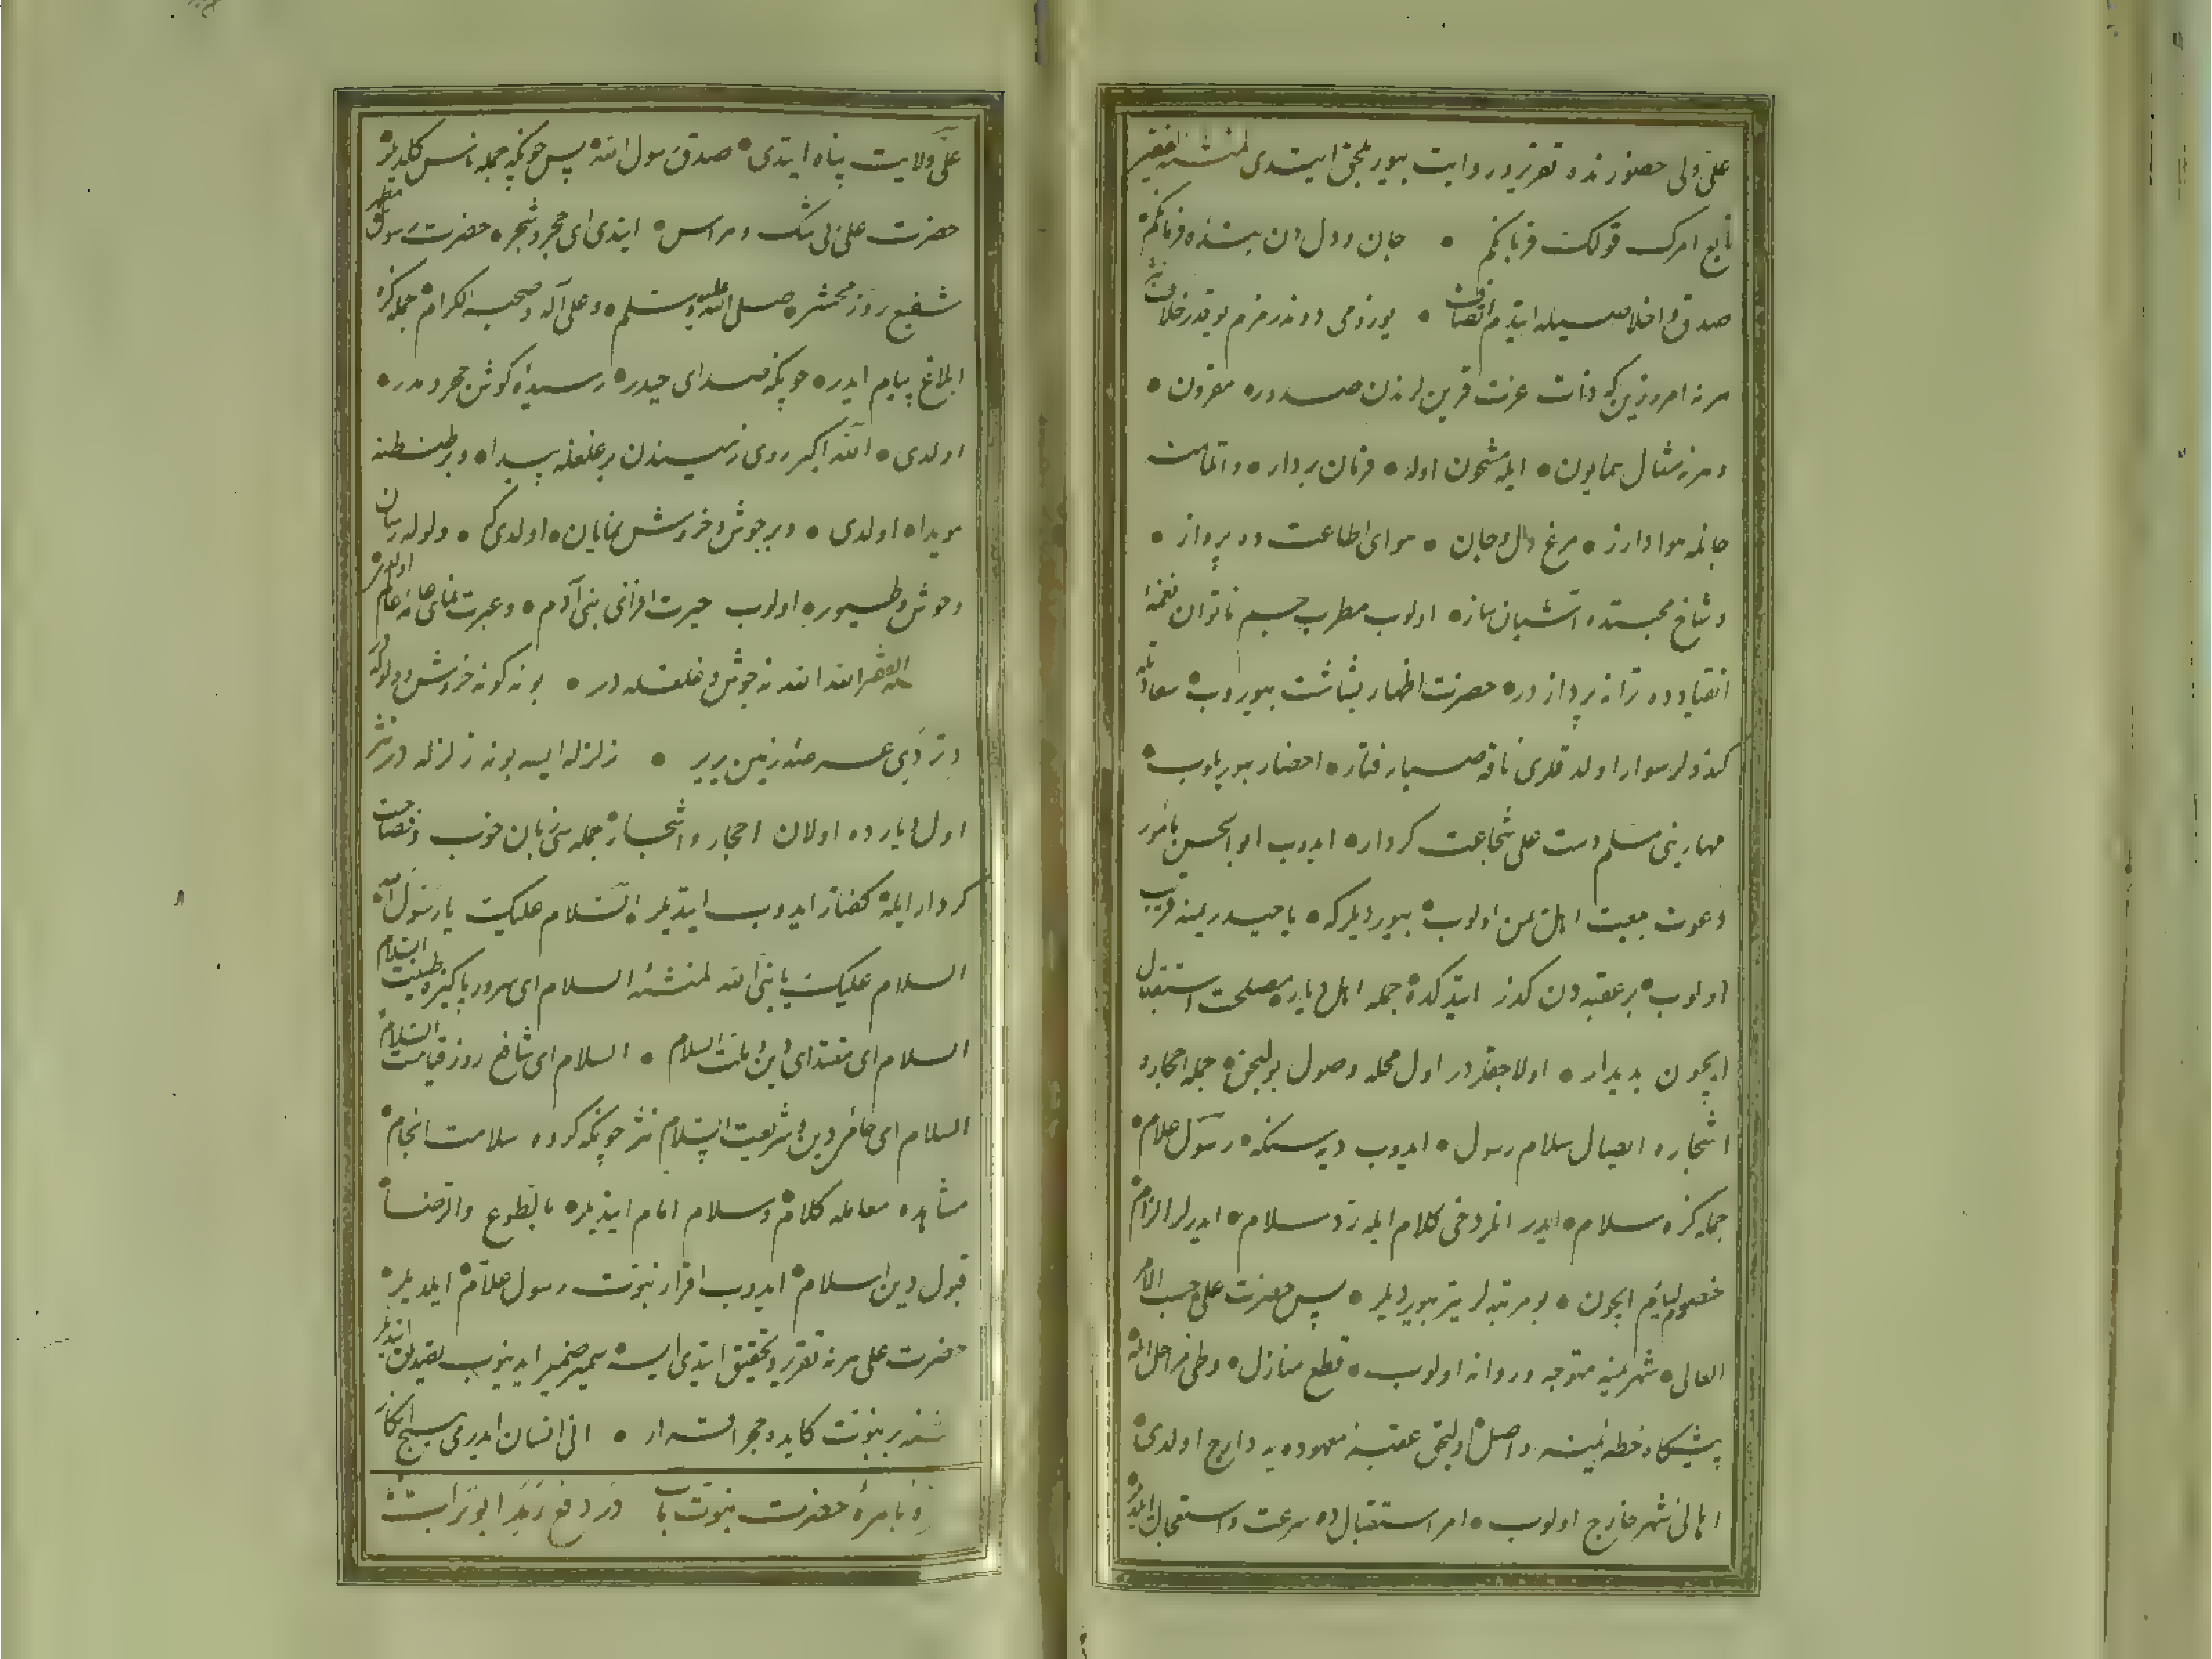 علی ولی حضورنده تقریر و روایت بیوریلجق ایتدی لمنشئه الفقیر
تابع امرک قولک قربانکم • جان و دل دن بنده فرمانکم
صدق و اخلاصیله ایتدم اتصاف • یوزومی دوندرمزم یوقدر خلاف نثر
هر نه امر وزین که ذات عزت قرین لرندن صدوره مقرون •
و هر نه مثال همایون • ایله مشحون اوله • فرمان بردار • و اتمامنه
جانله هوادارز • مرغ دل و جان • هوای اطاعت ده پرواز •
و شاخ محبتده آشیان ساز • اولوب مطرب جسم ناتوان نغمهٔ
انقیادده ترانه پردازدر • حضرت اظهار بشاشت بیوروب سعادتله
کندولر سوار اولدقلری ناقه صبا رفتار • احضار بیوریلوب •
مهارینی مسلم دست علی شجاعت کردار • ایدوب ابوالحسن مأمور
دعوت بیعت اهل یمن اولوب • بیوردیلرکه • یا حیدر یمنه قریب
اولوب • بر عقبه دن کذر ایتدکده • جمله اهل دیار • مصلحت استقبال
ایچون بدیدار • اولاجقلردر اول محله وصول بولیجق • جمله احجار و
اشجاره ایصال سلام رسول • ایدوب دیه سنکه • رسول علام •
جمله کزه سلام • ایدر انلر دخی کلام ایله رد سلام • ایدرلر الزام
خصوم لیام ایچون • بو مرتبه لر یتر بیوردیلر • پس حضرت علی حسب الامر
العالی • شهر یمنه متوجه و روانه اولوب • قطع منازل • و طی مراحل ایله
پیشکاه خطه یمنه واصل اولیجق عقبهٔ معهوده یه دارج اولدی •
اهالی شهر خارج اولوب • امر استقبالده سرعت و استعجال ایلدیلر
علی ولایت پناه ایتدی • صدق رسول الله • پس چونکه جمله ناس کلدیلر
حضرت علی بی شک و هراس • ایتدی ای حجر و شجر • حضرت رسول
شفیع روز محشر • صلی الله علیه و سلم • و علی آله و صحبه الکرام • جمله کزه
ابلاغ پیام ایدر • چونکه صدای حیدر • رسیدهٔ کوش حجر و مدر •
اولدی • الله اکبر روی زمیندن بر غلغله پیدا • و بر طنطنه
هویدا • اولدی • و بر جوش و خروش نمایان • اولدی که • ولوله رسان
وحوش و طیور • اولوب حیرت افزای بنی آدم • و عبرت نمای عالم اولمشدر
لمنشئه الفقیر الله الله نه جوش و غلغله در • بو نه کونه خروش و ولوله در
دتردی عرصهٔ زمین یر یر • زلزله ایسه بو نه زلزله در نثر
اول دیارده اولان احجار و اشجار • جمله سی زبان خوب و فصاحت
کردار ایله • کفتار ایدوب ایتدیلر • السلام علیک یا رسول الله •
السلام علیک یا نبی الله لمنشئه السلام ای سرور پاکیزه طینت السلام
السلام ای مقتدای دین و ملت السلام • السلام ای شافع روز قیامت السلام
السلام ای حامی دین و شریعت السلام نثر چونکه کروه سلامت انجام •
مشاهده معامله کلام و سلام امام ایتدیلر • بالطوع و الرضا •
قبول دین اسلام • ایدوب اقرار نبوت رسول علام • ایلدیلر •
حضرت علی هر نه تقریر و تحقیق ایتدی ایسه
انی انسان ایدر می هیچ انکار
حضرت نبوت مآب در دفع رمد ابو تراب